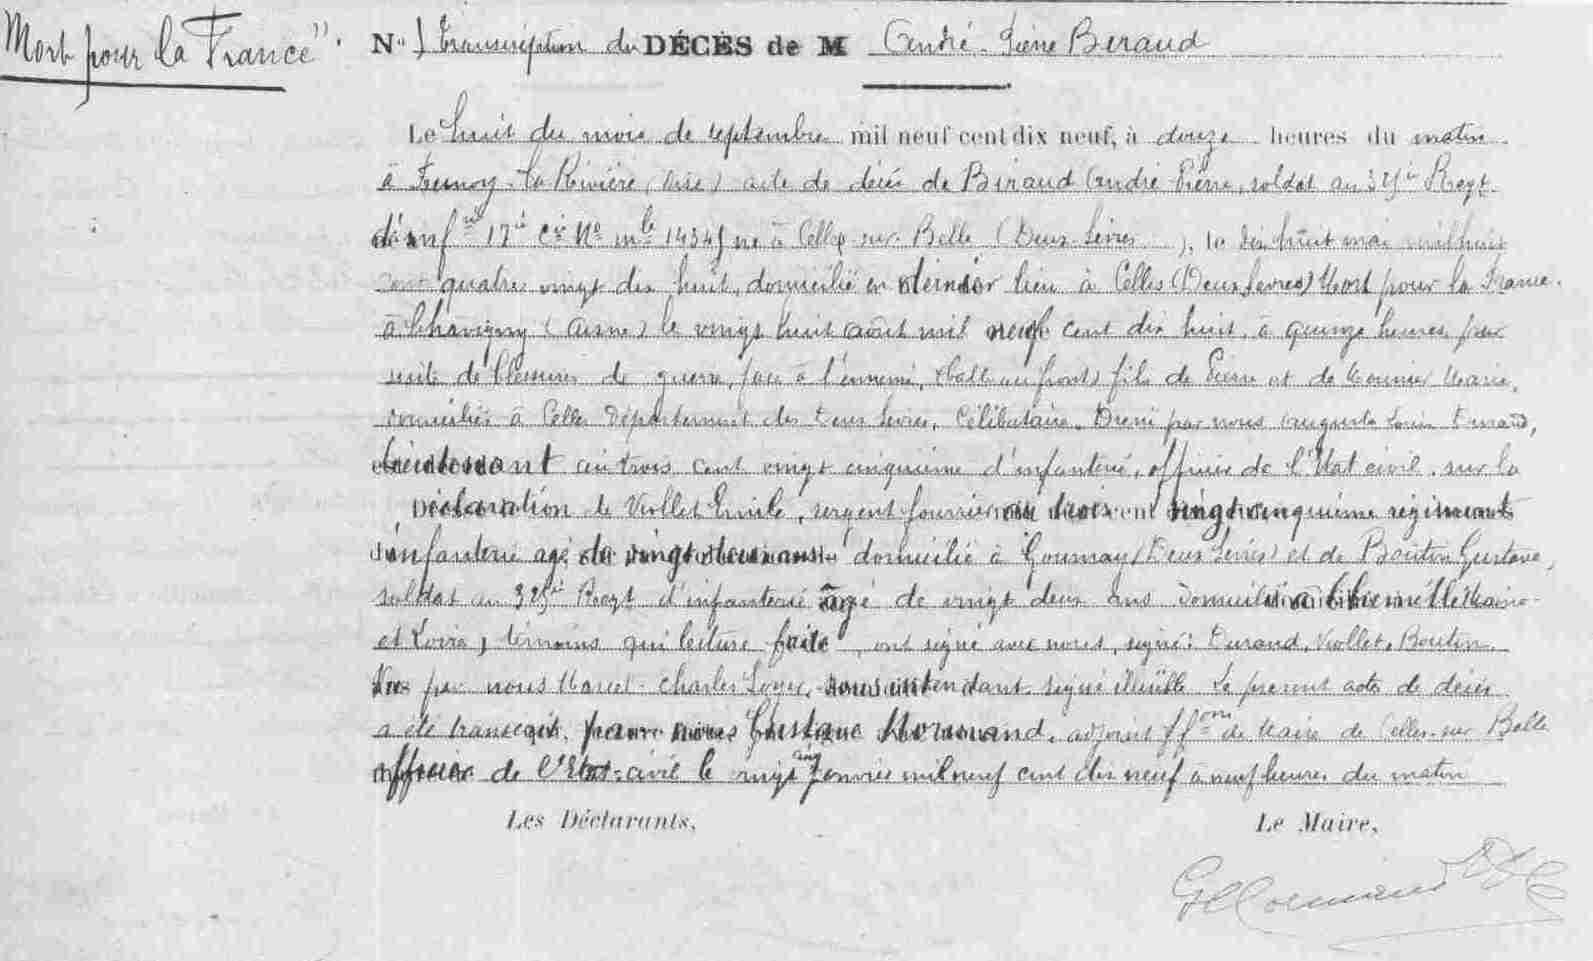 Mort pour la France".
N° 1 transcription du DÉCÈS de M André Pierre Beraud
Le huit du mois de septembre mil neuf cent dix neuf, à douze heures du matin
à la Rivière (Oise) acte de décès de Béraud André Pierre, soldat au 325e Regt
d'inf 17e Cie No mle 14345 né à Celles sur Belle (Deux Sèvres ), le dix huit mai mil huit
cent quatre vingt dix huit, domicilié en dernier lieu à Celles (Deux Sèvres) Mort pour la France
à Chavigny (Aisne) le vingt huit août mil neuf cent dix huit, à quinze heures, par
suite de blessures de guerre, face à l'ennemi, fils de Pierre et de Marie,
domiciliés à Celles département des Deux Sèvres, Célibataire. Dressé par nous Auguste Louis Durand,
au trois cent vingt cinquième d'infanterie, officier de l'Etat civil, sur la
déclaration de Viollet Emile, sergent fourrier au trois cent vingt cinquième régiment
d'infanterie agé de vingt deux ans domicilié à Gournay (Deux Sèvres) et de Boutin Gustave,
soldat au 325e Regt d'infanterie âgé de vingt deux ans domicilié à Maine-
et Loire, témoins qui lecture faite, ont signé avec nous, signé: Durand, Viollet, Boutin.
Vu par nous Marcel-Charles sous intendant signé illisible Le present acte de décès
a été transcrit par nous Gustave Normand, adjoint ffons de Maire de Celles-sur Belle
officier de l'Etat-civil le vingt cinq Janvier mil neuf cent dix neuf à neuf heures du matin
Les Déclarants,
Le Maire,
G Normand